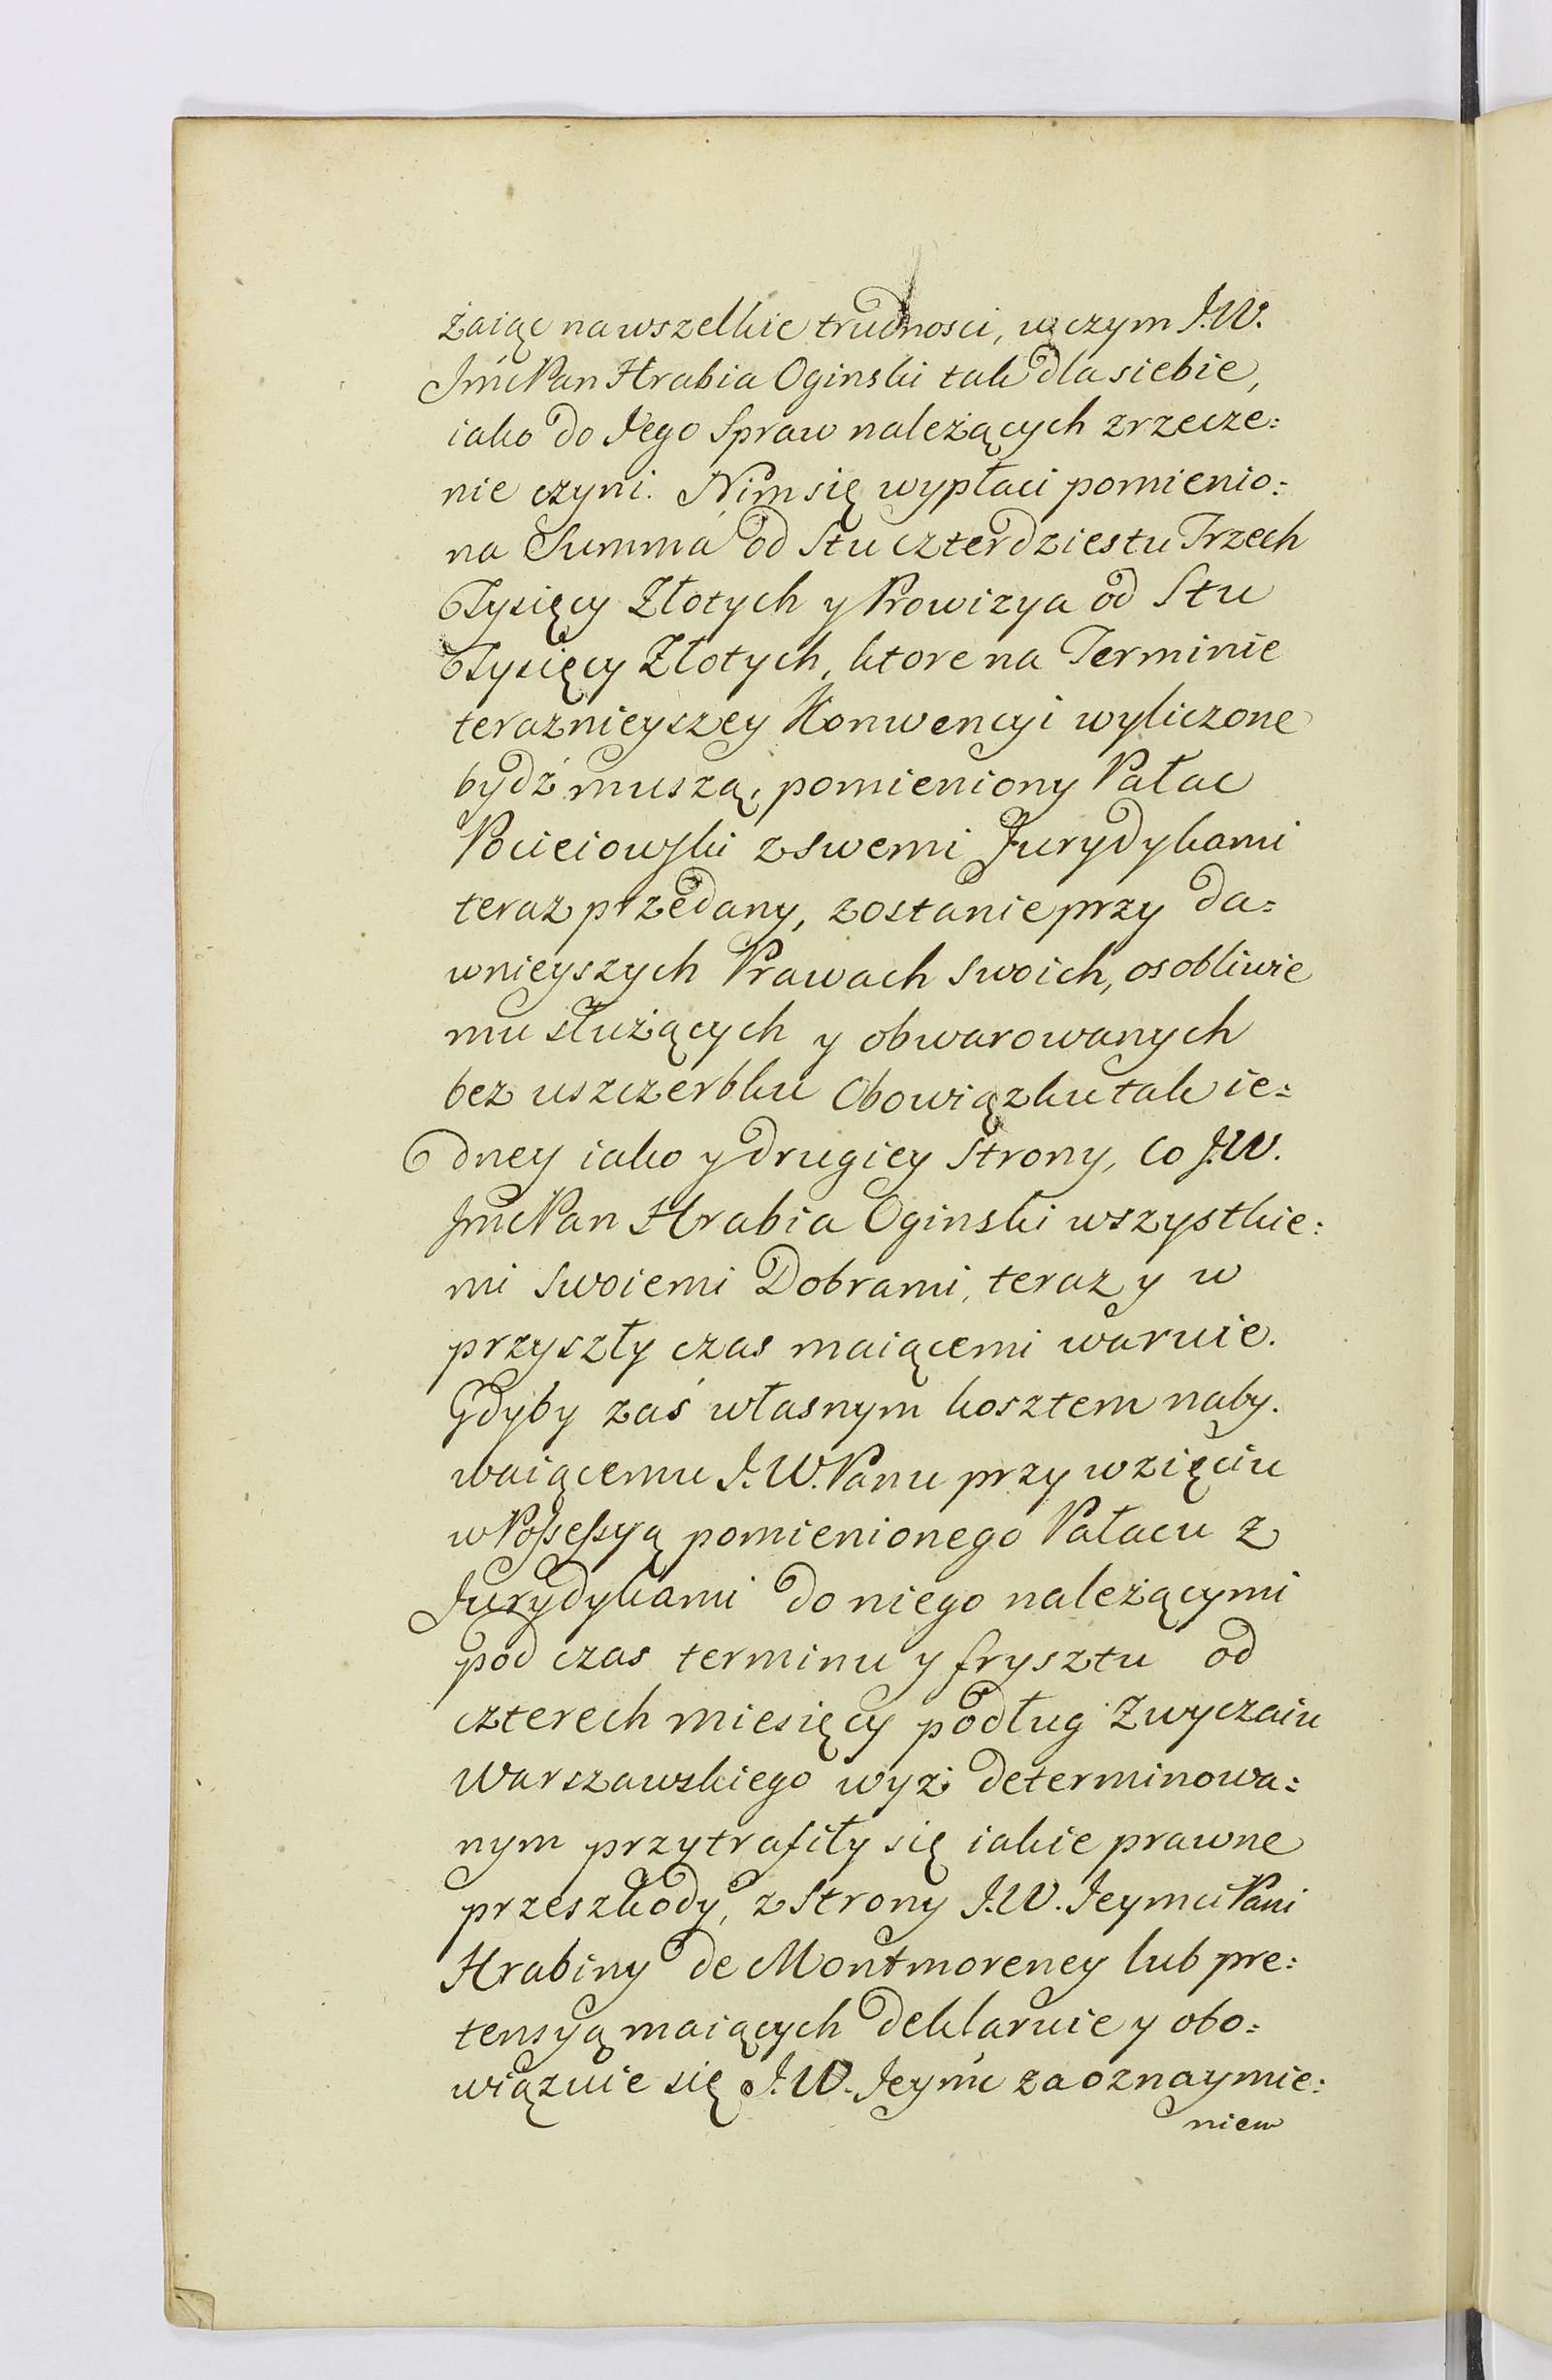 żaiąc na wszelkie trudnosci, w czym J.W.
Jmć Pan Hrabia Oginski tak dla siebie,
iako do Jego Spraw należących zrzecze=
nie czyni. Nim się wypłaci pomienio=
na Summa od Stu czterdziestu Trzech
Tysięcy Złotych y Prowizya od Stu
Tysięcy Złotych, ktore na Terminie
teraznieyszey Konwencyi wyliczone
bydź muszą, pomieniony Pałac
Pociejowski z swemi Jurydykami
teraz przedany, zostanie przy da=
wnieyszych Prawach swoich, osobliwie
mu służących y obwarowanych
bez uszczerbku Obowiązku tak ie=
dney iako y drugiey Strony, Co J.W.
Jmć Pan Hrabia Oginski wszystkie=
mi swoiemi Dobrami, teraz y w
przyszły czas maiącemi waruie.
Gdyby zaś własnym kosztem naby=
waiącemu J.W. Panu przy wzięciu
w Possessyą pomienionego Pałacu z
Jurydykami do niego należącymi
pod czas terminu y frysztu od
czterech miesięcy podług Zwyczaiu
Warszawskiego wyż determinowa=
nym przytrafiły się iakie prawne
przeszkody, z Strony J.W. Jeymci Pani
Hrabiny de Montmorency lub pre=
tensyą maiących deklaruie y obo=
wiązuie się J.W. Jeymć za oznaymie=
niem